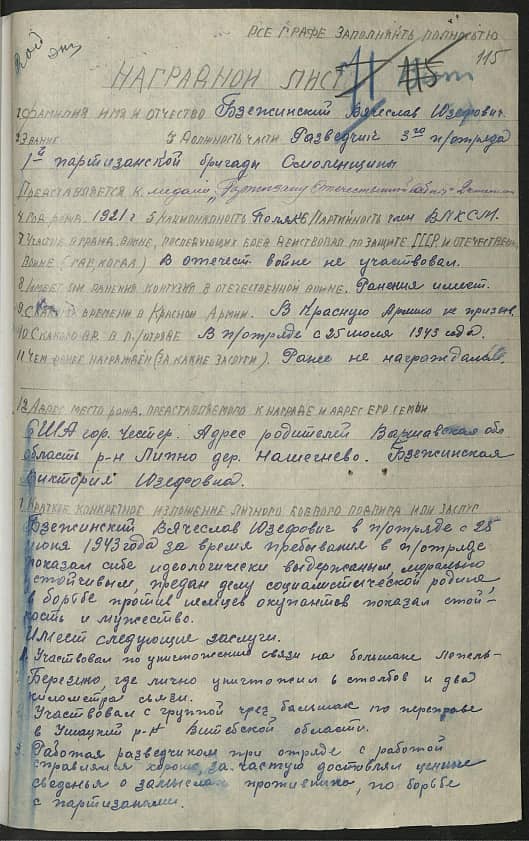 Все графе заполнять полностью
115
Наградной лист
1 Фамилия имя и отчество Бзежинский Вячеслав Юзефович.
2 Звание 3 Должность части Разведчик 3го п/отряда
1й партизанской бригады Смоленщины
Представляется к медали „Партизану Отечественной войны" 2 степени
4 Год рожд. 1921 г 5 Национальность Поляк 6 Партийность член ВЛКСМ.
7 Участие в гражд. войне, последующих боев действ по защите СССР и отечествен
войне (где, когда.) В отечест войне не участвовал.
8 Имеет ли ранения контузия в отечественной войне. Ранения имеет.
9 С какого времени в Красной Армии. В Красную Армию не призыв.
10 С какого вр. в п/отряде В п/отряде с 25 июля 1943 года.
11 Чем ранее награжден (за какие заслуги). Ранее не награждался.
12 Адрес место рожд. представляемого к награде и адрес его семьи
США гор. Честер. Адрес родителей Варшавская обл
область р-н Липно дер. Бзежинская
Виктория Юзефовна.
Краткое конкретное изложение личного боевого подвига или заслуг
Бзежинский Вячеслав Юзефович в п/отряде с 25
июня 1943 года за время пребывания в п/отряде
показал себе идеологически выдержаным, морально
устойчивым, предан делу социалистической родине,
в борьбе против немцев окупантов показал стой-
кость и мужество.
Имеет следующие заслуги.
1. Участвовал по уничтожению связи на большаке Лепель-
Березино, где лично уничтожил 8 столбов и два
километра связи.
2. Участвовал с группой чрез бальшак по переправе
в Ушацкий р-н Витебской области.
3. Работая разведчиком при отряде с работой
справлялся хорошо, за частую доставлял ценные
сведенья о замыслах противника, по борьбе
с партизанами.